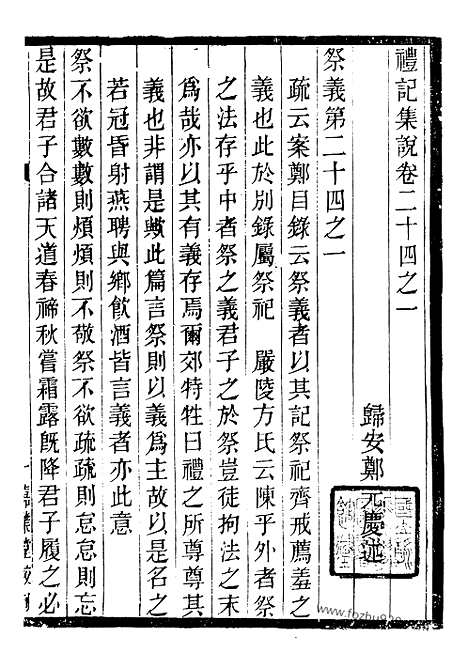 禮記集說卷二十四之一
歸安鄭元慶述
祭義第二十四之一
疏云案鄭目錄云祭義者以其記祭祀齊戒薦羞之
義也此於別錄屬祭祀　嚴陵方氏云陳乎外者祭
之法存乎中者祭之義君子之於祭豈徒拘法之末
爲哉亦以其有義存焉爾郊特牲曰禮之所尊尊其
義也非謂是歟此篇言祭則以義爲主故以是名之
若冠昏射燕聘與鄉飮酒皆言義者亦此意
祭不欲數數則煩煩則不敬祭不欲疏疏則怠怠則忘
是故君子合諸天道春禘秋嘗霜露旣降君子履之必